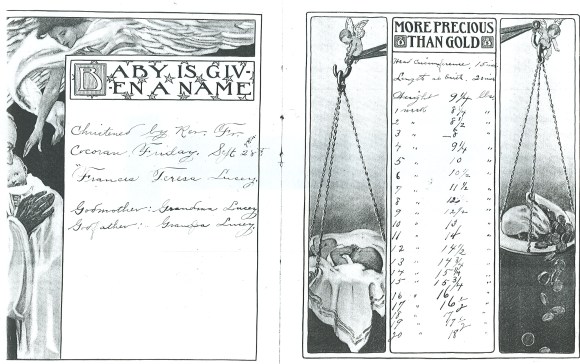 BABY IS GIV-
EN A NAME
Christened by Rev. Fr.
Cocoran, Friday, Sept 28
"Francis Teresa Lucey.
Godmother: Grandma Lucey
Godfather: Grandpa Lucey.
MORE PRECIOUS
THAN GOLD
Head Circumference, 15
Length at birth, 21
Weight 9 1/4 lbs
1 week
2 " 8 1/2 "
3 "
4 " 9 1/4 "
5 " 10 "
6 " 10 1/2 "
7 " "
8 " 12 "
9 " 12 1/2 "
10 " 13 "
11 " 14 "
12 " 14 1/2 "
13 " 14 3/4 "
14 " 15 "
15 " 15 3/4 "
16 " 16 "
17 " 16 1/2 "
18 " 17 "
19 " 17 1/2 "
20 " 18 "